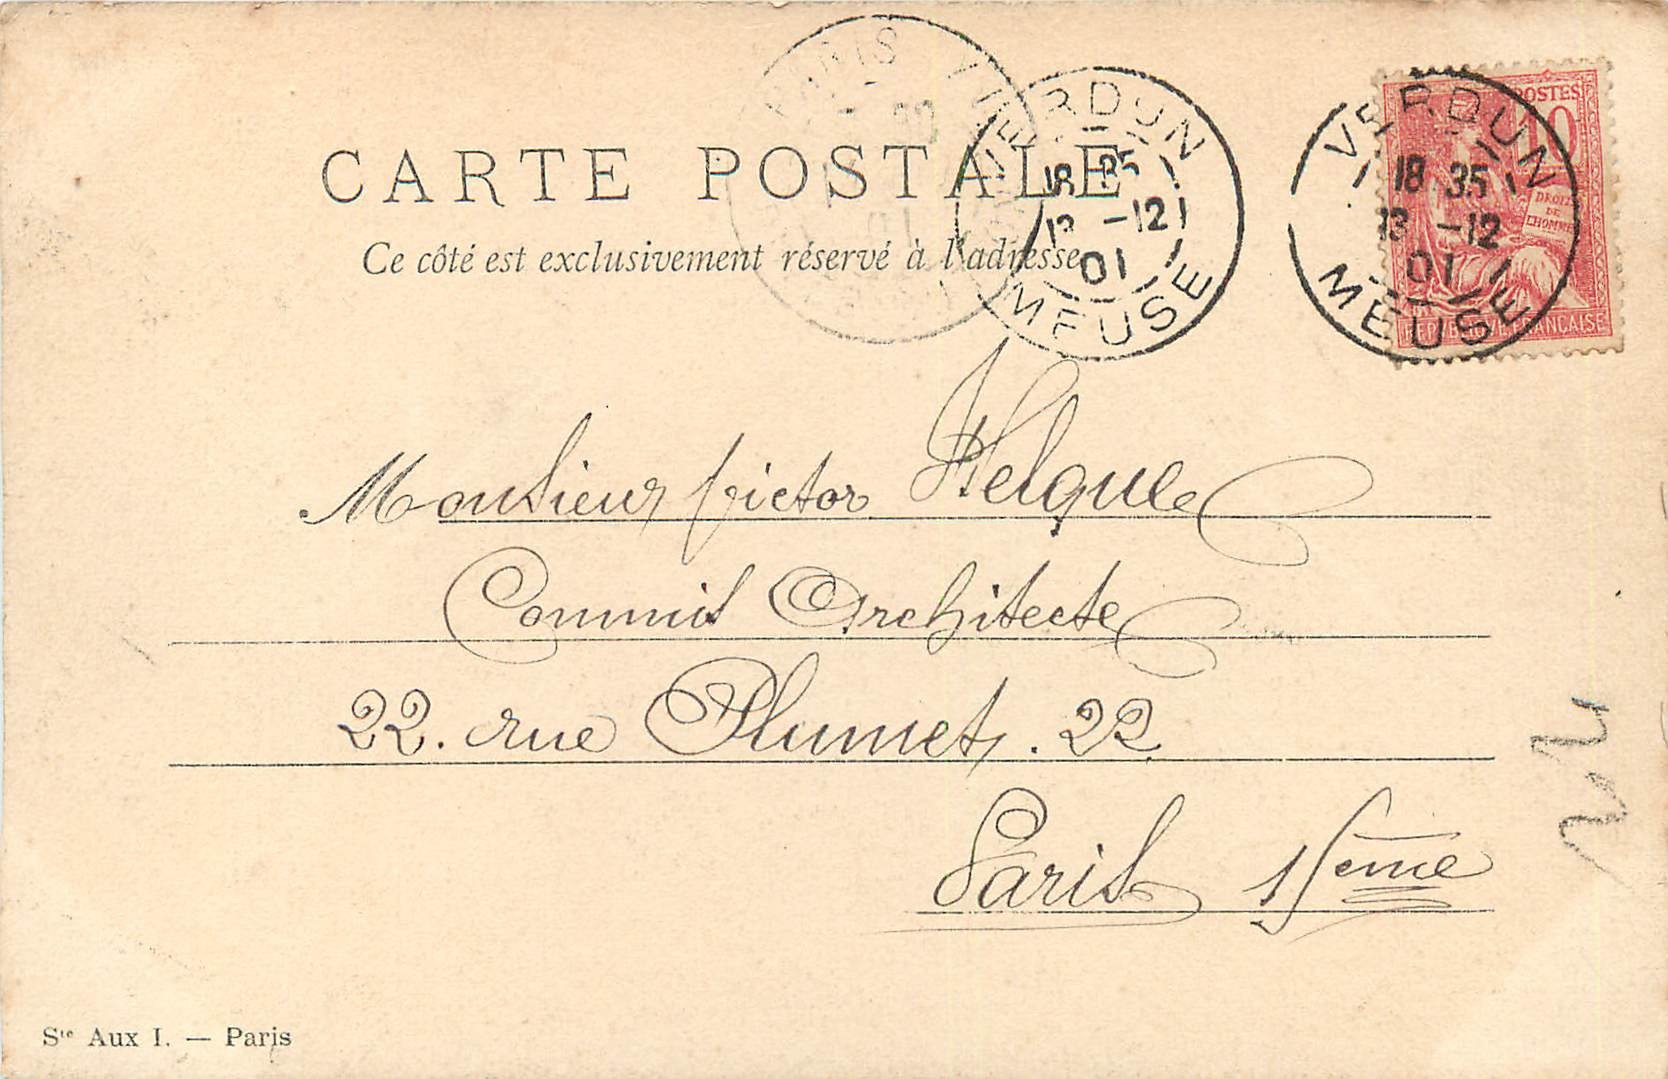 PARIS
VERDUN
18 35
13 -12
01
MEUSE
VERDUN
18 35
13 -12
01
MEUSE
POSTES
10
DROITS
DE
L'HOMME
REPUBLIQUE FRANÇAISE
CARTE POSTALE
Ce côté est exclusivement réservé à l'adresse
Monsieur Victor Helque
Commis Architecte
22. rue Plumet. 22
Paris 15eme
Sté Aux I. — Paris